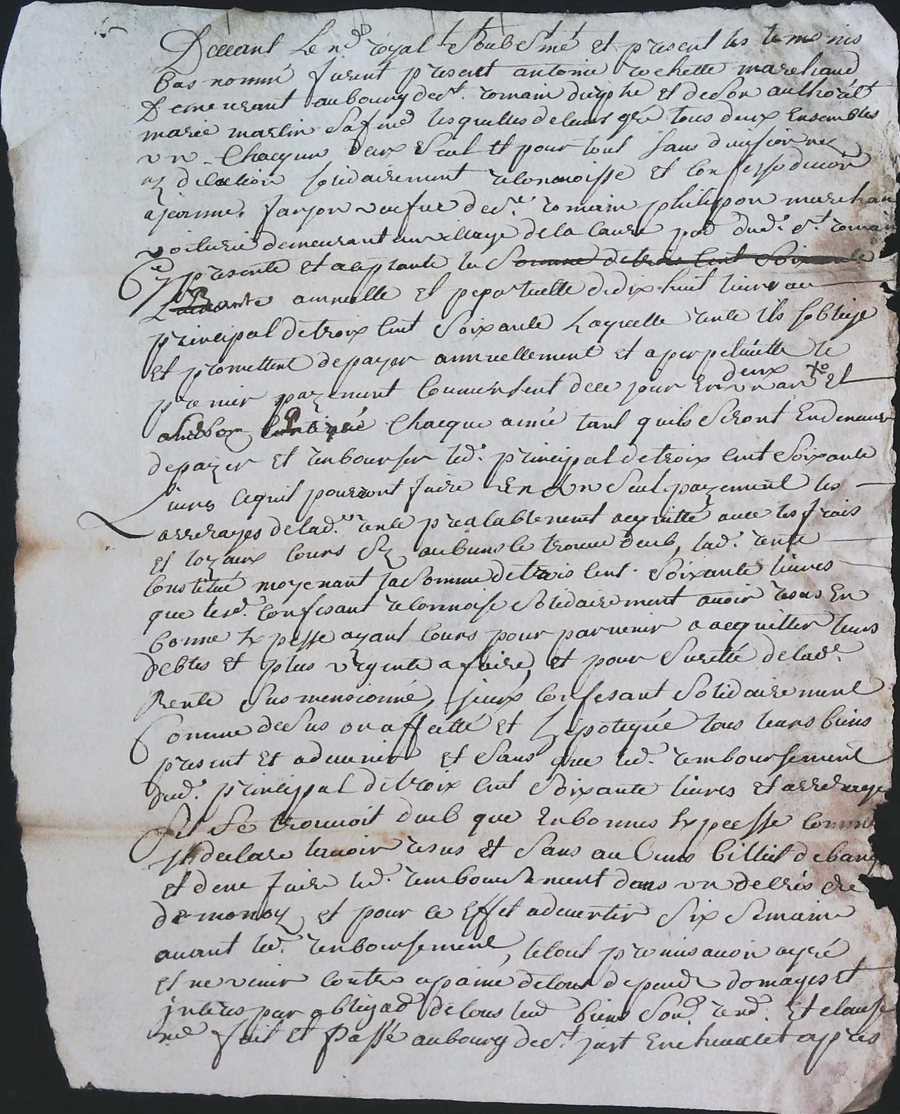 Devant le no.re royal soubsiné et present les temoins
bas nommé furent present antoine rochette marchand
Demeurant au bourg de st. romain et de son authorité
marie marlin sa fme lesquelles de leurs gré tous deux Ensembles
un chacqun deux seul et pour tout sans division ne
dication solidairement reconnoisse et confesse devoir
a jeanne farjon veufve de sr. romain philippon marchan
voiturie demeurant au village de la paro dud. st. romain
Cy presente et aceptante la somme de trois cent soixante
rante annuelle et perpetuelle de dix huit livres au
principal de troix cent soixante laquelle rente ils soblige
et promettent de payer annuellement et a perpetuitte le
premier payement Commensent de ce jour En deux un an et
Chacque année tant quils seront En demeure
de payer et renbourser led. principal de troix cent soixante
Livres ce quil pourront faire En Un seul payement les
arrerages de lad. rente prealablement acquitté avec les frais
et loyaux cours sy aubuns se trouve deub, lad. rente
Constitué moyenant la somme de trois cent soixante livres
que lesd. confesant reconnoise solidairement avoir resus En
bonne Expesse ayant cours pour parvenir a acquitter leurs
debtes et plus urgente afaire, et pour sureté de lad.
Rente sus mensionné, iceux confesant solidairement
Comme desus on affecté et hipotequé tous leurs biens
present et advenir et sans que led. remboursement
dud. principal de troix cent soixante livres et arrerage
sil se trouvoit deub que En bonnes Expesse comme
il declare lavoir resus et sans aucuns billiet de banq
et de ne faire led. rembourssement dans un decris de
de monoy, et pour ce Effet advertir six semaine
avant led. renboursement, le tout promis avoir agréé
et ne venir contre a paine de tout depend domages et
interes par obligaon de tous leud. biens soub. rend. Et clause
fait et passé au bourg de st. just En et apres